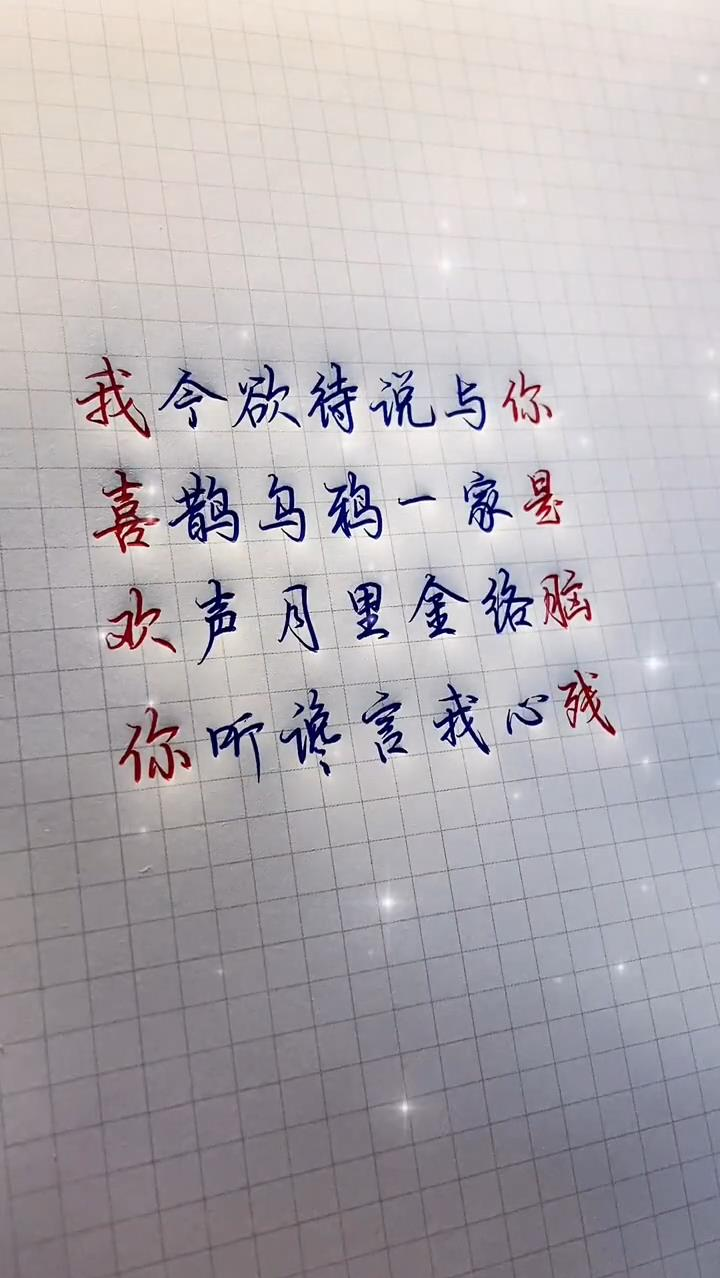 我今欲待说与你
喜鹊乌鸦一家是
欢声月里金络脑
你听谗言我心残